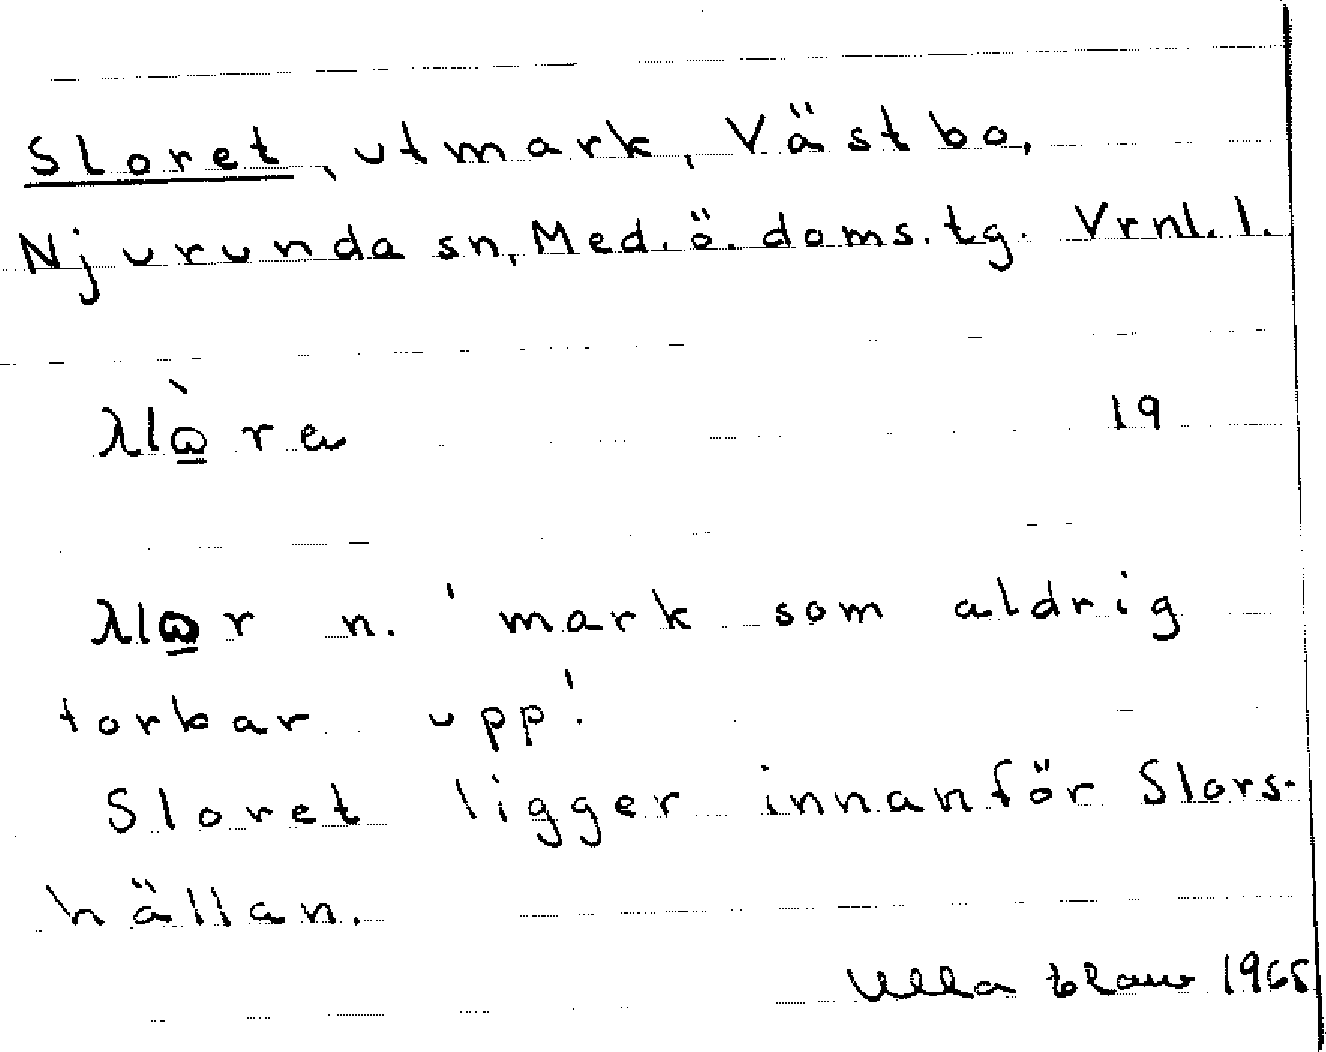 Sloret, utmark, Västbo,
Njurunda sn, Med. ö. doms. tg. Vrnl. l.
19
n. 'mark som aldrig
torkar upp'.
Sloret ligger innanför Slors-
hällan.
Ulla 1965